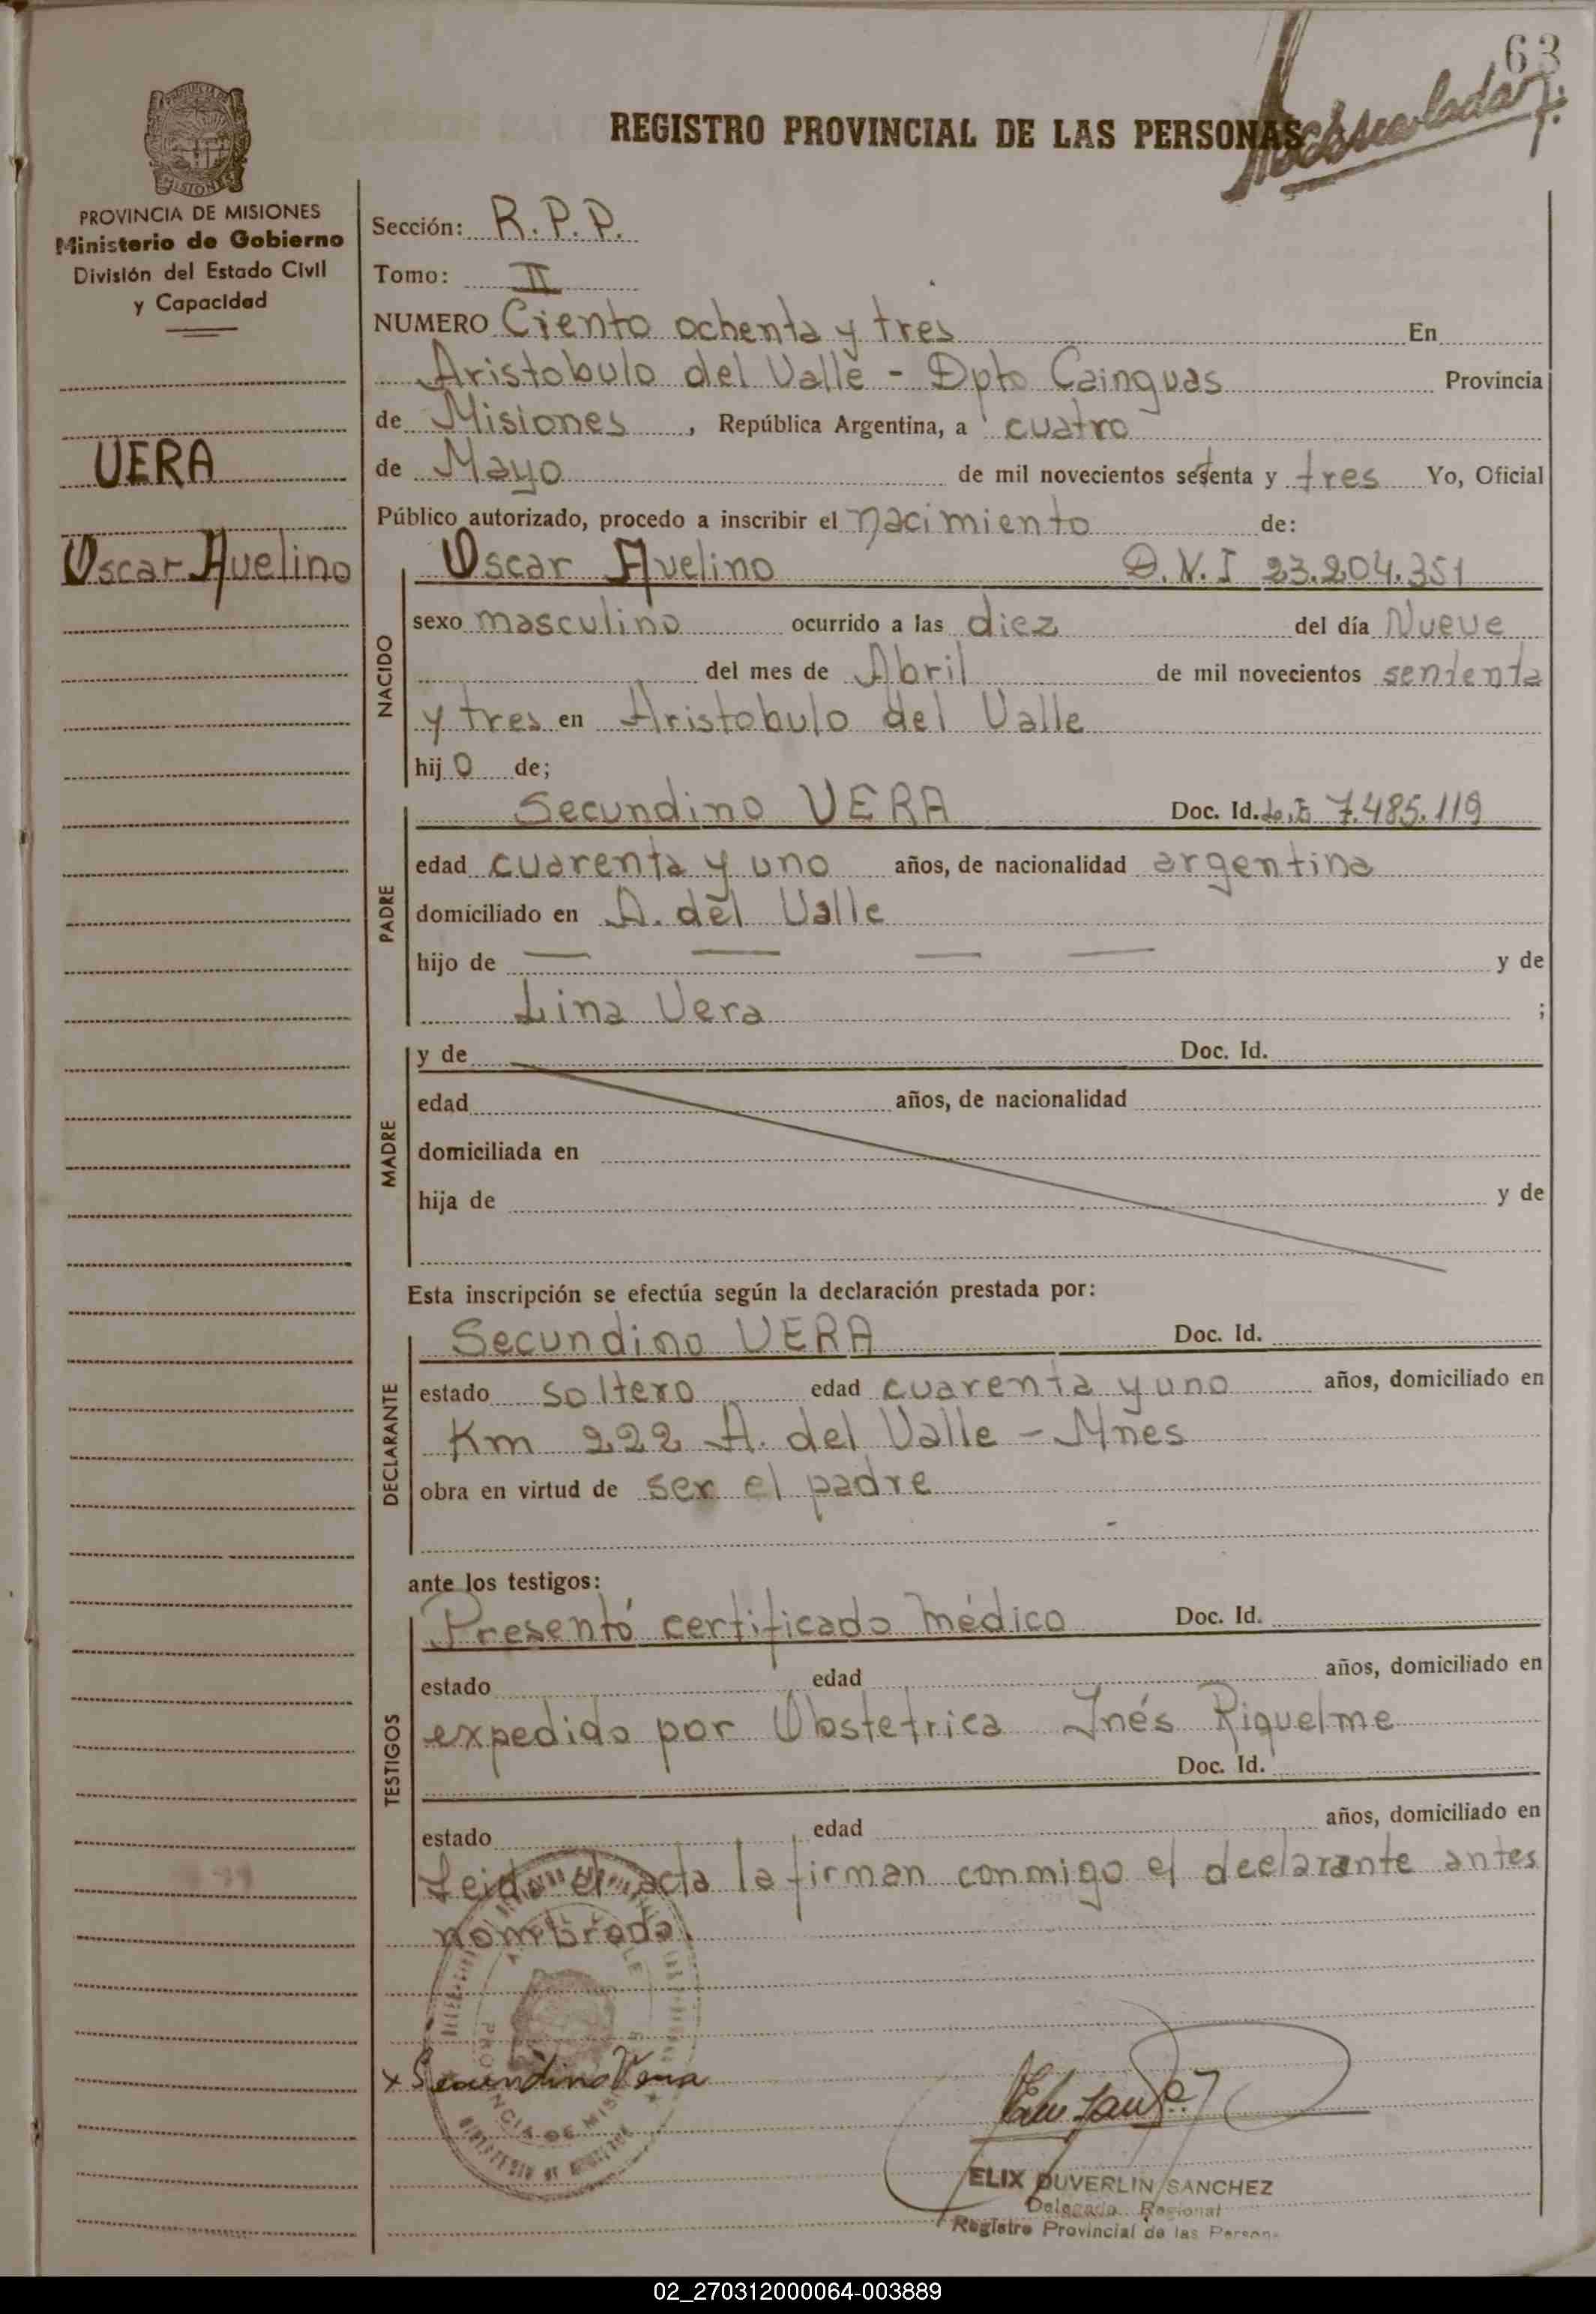 63
REGISTRO PROVINCIAL DE LAS PERSONAS
PROVINCIA DE MISIONES
Ministerio de Gobierno
División del Estado Civil
y Capacidad
VERA
Oscar Avelino
Sección: R.P.P.
Tomo: II
NUMERO Ciento ochenta y tres En
Aristobulo del Valle - Dpto Cainguas Provincia
de Misiones, República Argentina, a cuatro
de Mayo de mil novecientos setenta y tres Yo, Oficial
Público autorizado, procedo a inscribir el nacimiento de:
NACIDO
Oscar Avelino D.N.I 23.204.351
sexo masculino ocurrido a las diez del día Nueve
del mes de Abril de mil novecientos sententa
y tres en Aristobulo del Valle
hijo de;
PADRE
Secundino VERA Doc. Id. L.E 7.485.119
edad cuarenta y uno años, de nacionalidad argentina
domiciliado en A. del Valle
hijo de — — — — y de
Lina Vera ;
MADRE
y de Doc. Id.
edad años, de nacionalidad
domiciliada en
hija de y de
Esta inscripción se efectúa según la declaración prestada por:
DECLARANTE
Secundino VERA Doc. Id.
estado soltero edad cuarenta y uno años, domiciliado en
Km 222 A. del Valle - Mnes
obra en virtud de ser el padre
ante los testigos:
TESTIGOS
Presentó certificado médico Doc. Id.
estado edad años, domiciliado en
expedido por Obstetrica Inés Riquelme
Doc. Id.
estado edad años, domiciliado en
Leida el acta la firman conmigo el declarante antes
nombrado
x Secundino Vera
PROVINCIA DE MISIONES
FELIX DUVERLIN SANCHEZ
Delegado Regional
Registro Provincial de las Person
02_270312000064-003889